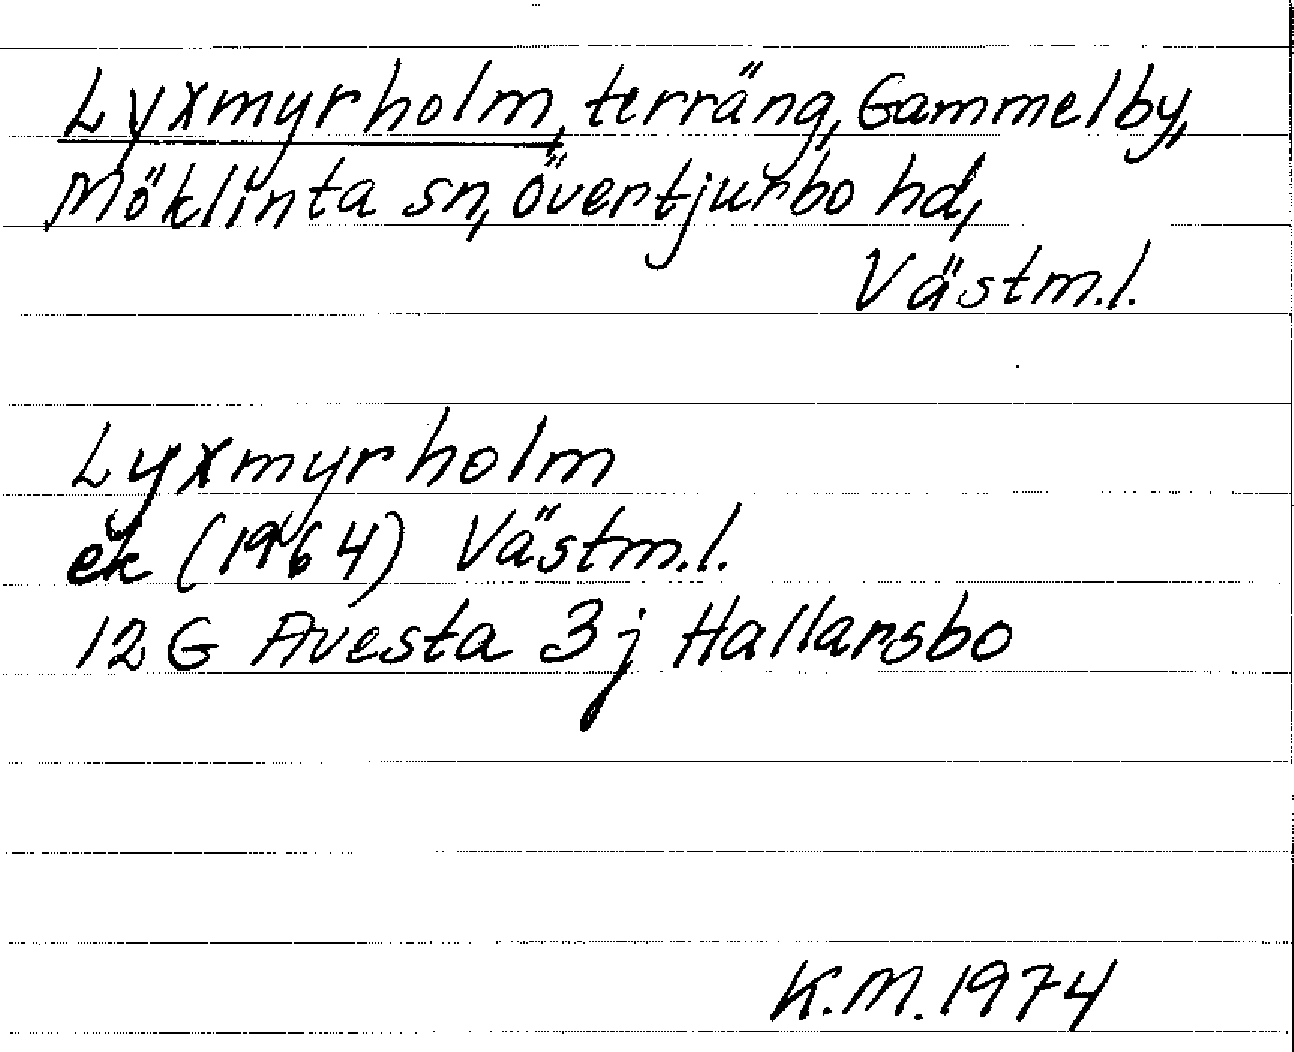 Lyxmyrholm, terräng, Gammelby,
Möklinta sn, Övertjurbo hd,
Västm.l.
Lyxmyrholm
ek (1964) Västm.l.
12 G Avesta 3 j Hallarsbo
K.M. 1974